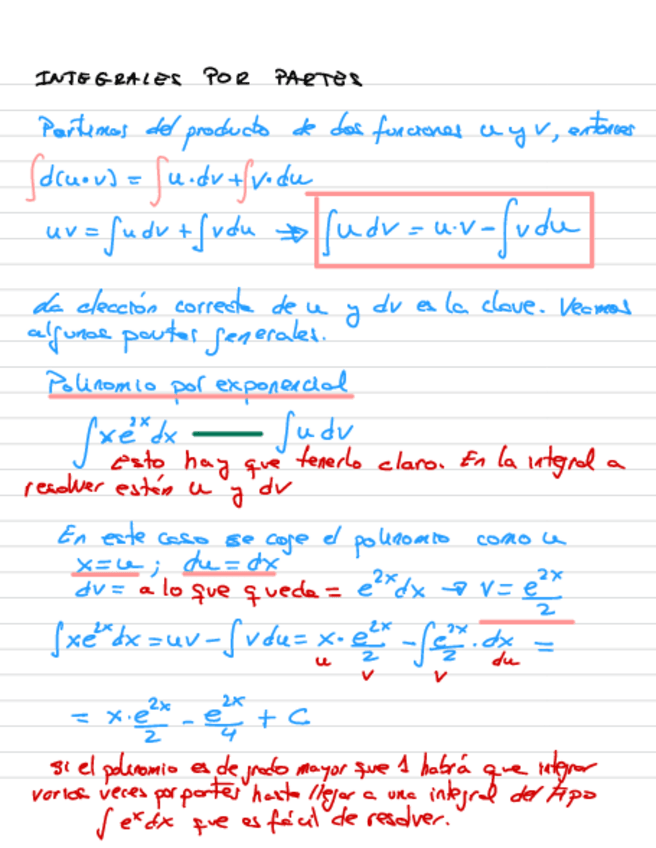 INTEGRALES POR PARTES
Partimos del producto de dos funciones u y v, entonces
∫d(u·v) = ∫u·dv + ∫v·du
uv = ∫u dv + ∫v du ⇒ ∫u dv = u·v - ∫v du
La elección correcta de u y dv es la clave. Veamos
algunas pautas generales.
Polinomio por exponencial
∫xe^{2x}dx — ∫u dv
Esto hay que tenerlo claro. En la integral a
resolver están u y dv
En este caso se coge el polinomio como u
x=u ; du=dx
dv = a lo que queda = e^{2x}dx → v = e^{2x}/2
∫xe^{2x}dx = uv - ∫v du = x·e^{2x}/2 - ∫e^{2x}/2 · dx =
u v v du
= x·e^{2x}/2 - e^{2x}/4 + C
Si el polinomio es de grado mayor que 1 habrá que integrar
varias veces por partes hasta llegar a una integral del tipo
∫e^x dx que es fácil de resolver.